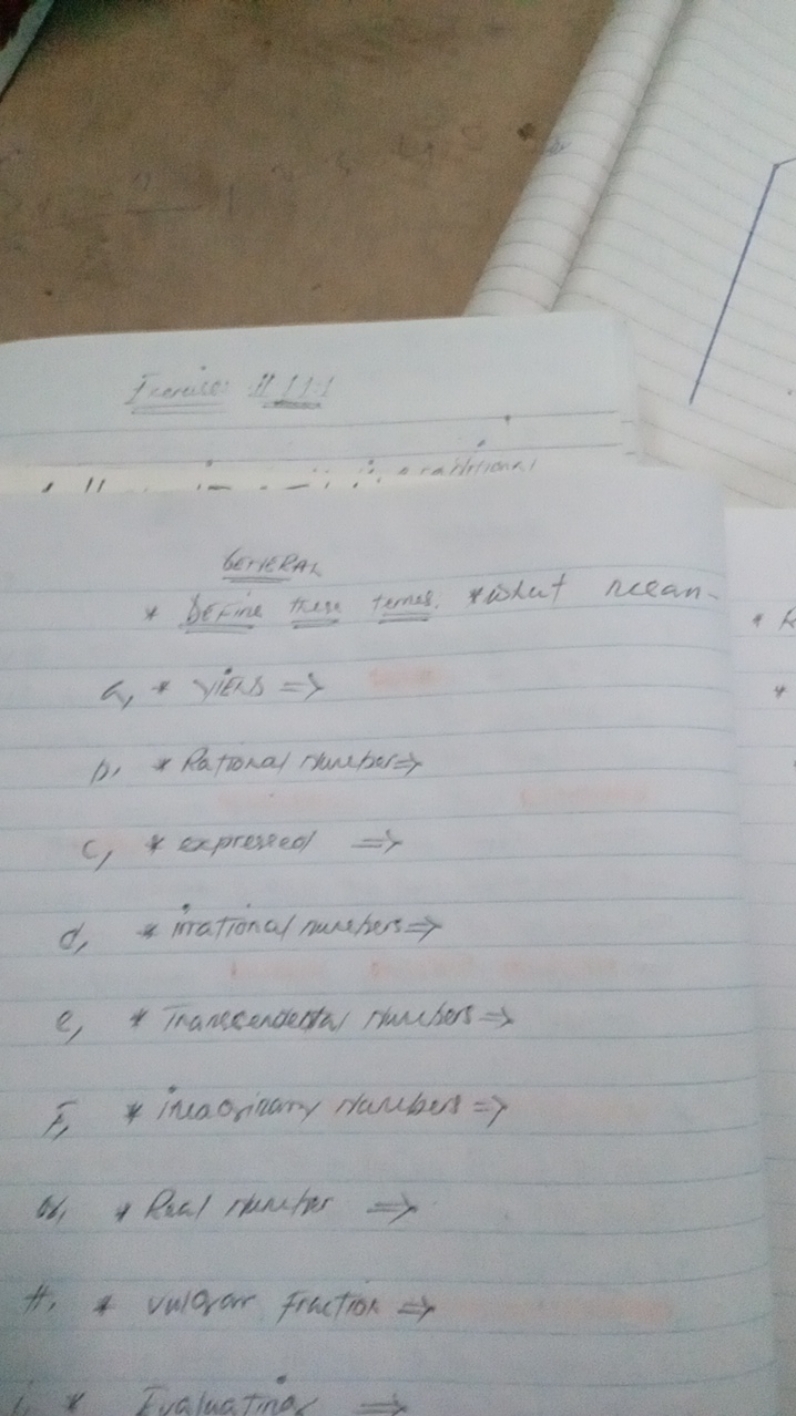 Exercises # 1.1.1
GENERAL
* DEFine these termes. * what mean-
a, * YiELD =>
b, * Rational Number =>
c, * expressed =>
d, * irrational numbers =>
e, * Transcendental Numbers =>
F, * imaginary Numbers =>
G, * Real Number =>
H, * vulgar Fraction =>
i, * Evaluating =>